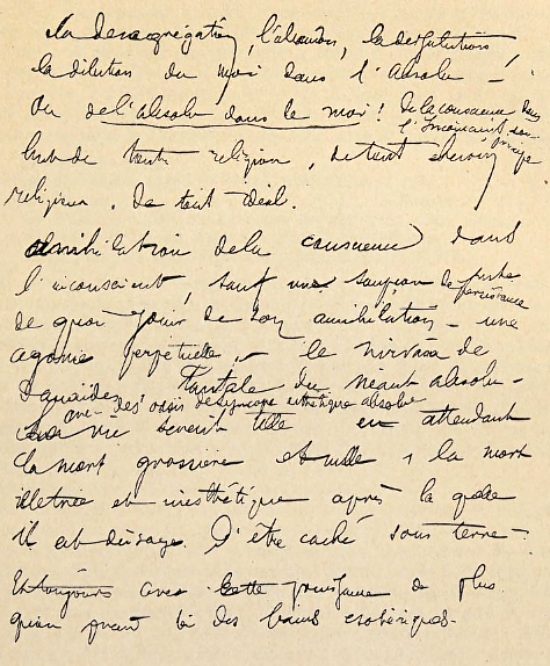 la désagrégation, l'abandon, la
la dilution du moi dans l'Absolu –
ou de l'absolu dans le moi ! De la conscience dans
l'Inconscient, son principe
but de toute religion, de tout
religieux. De tout idéal.
annihilation de la conscience dans
l'inconscient, sauf un soupçon de juste
persistance
de quoi jouir de son annihilation – une
agonie perpétuelle, – le nirvâsa de
Tantale du néant absolu –
avec des oasis de syncope esthétique absolue
vie serait telle en attendant
la mort grossière et nulle, la mort
illettrée et inesthétique après la quelle
il est d'usage d'être caché sous terre –
Et toujours avec cette jouissance de plus
qu'on prend là des bains ésotériques.